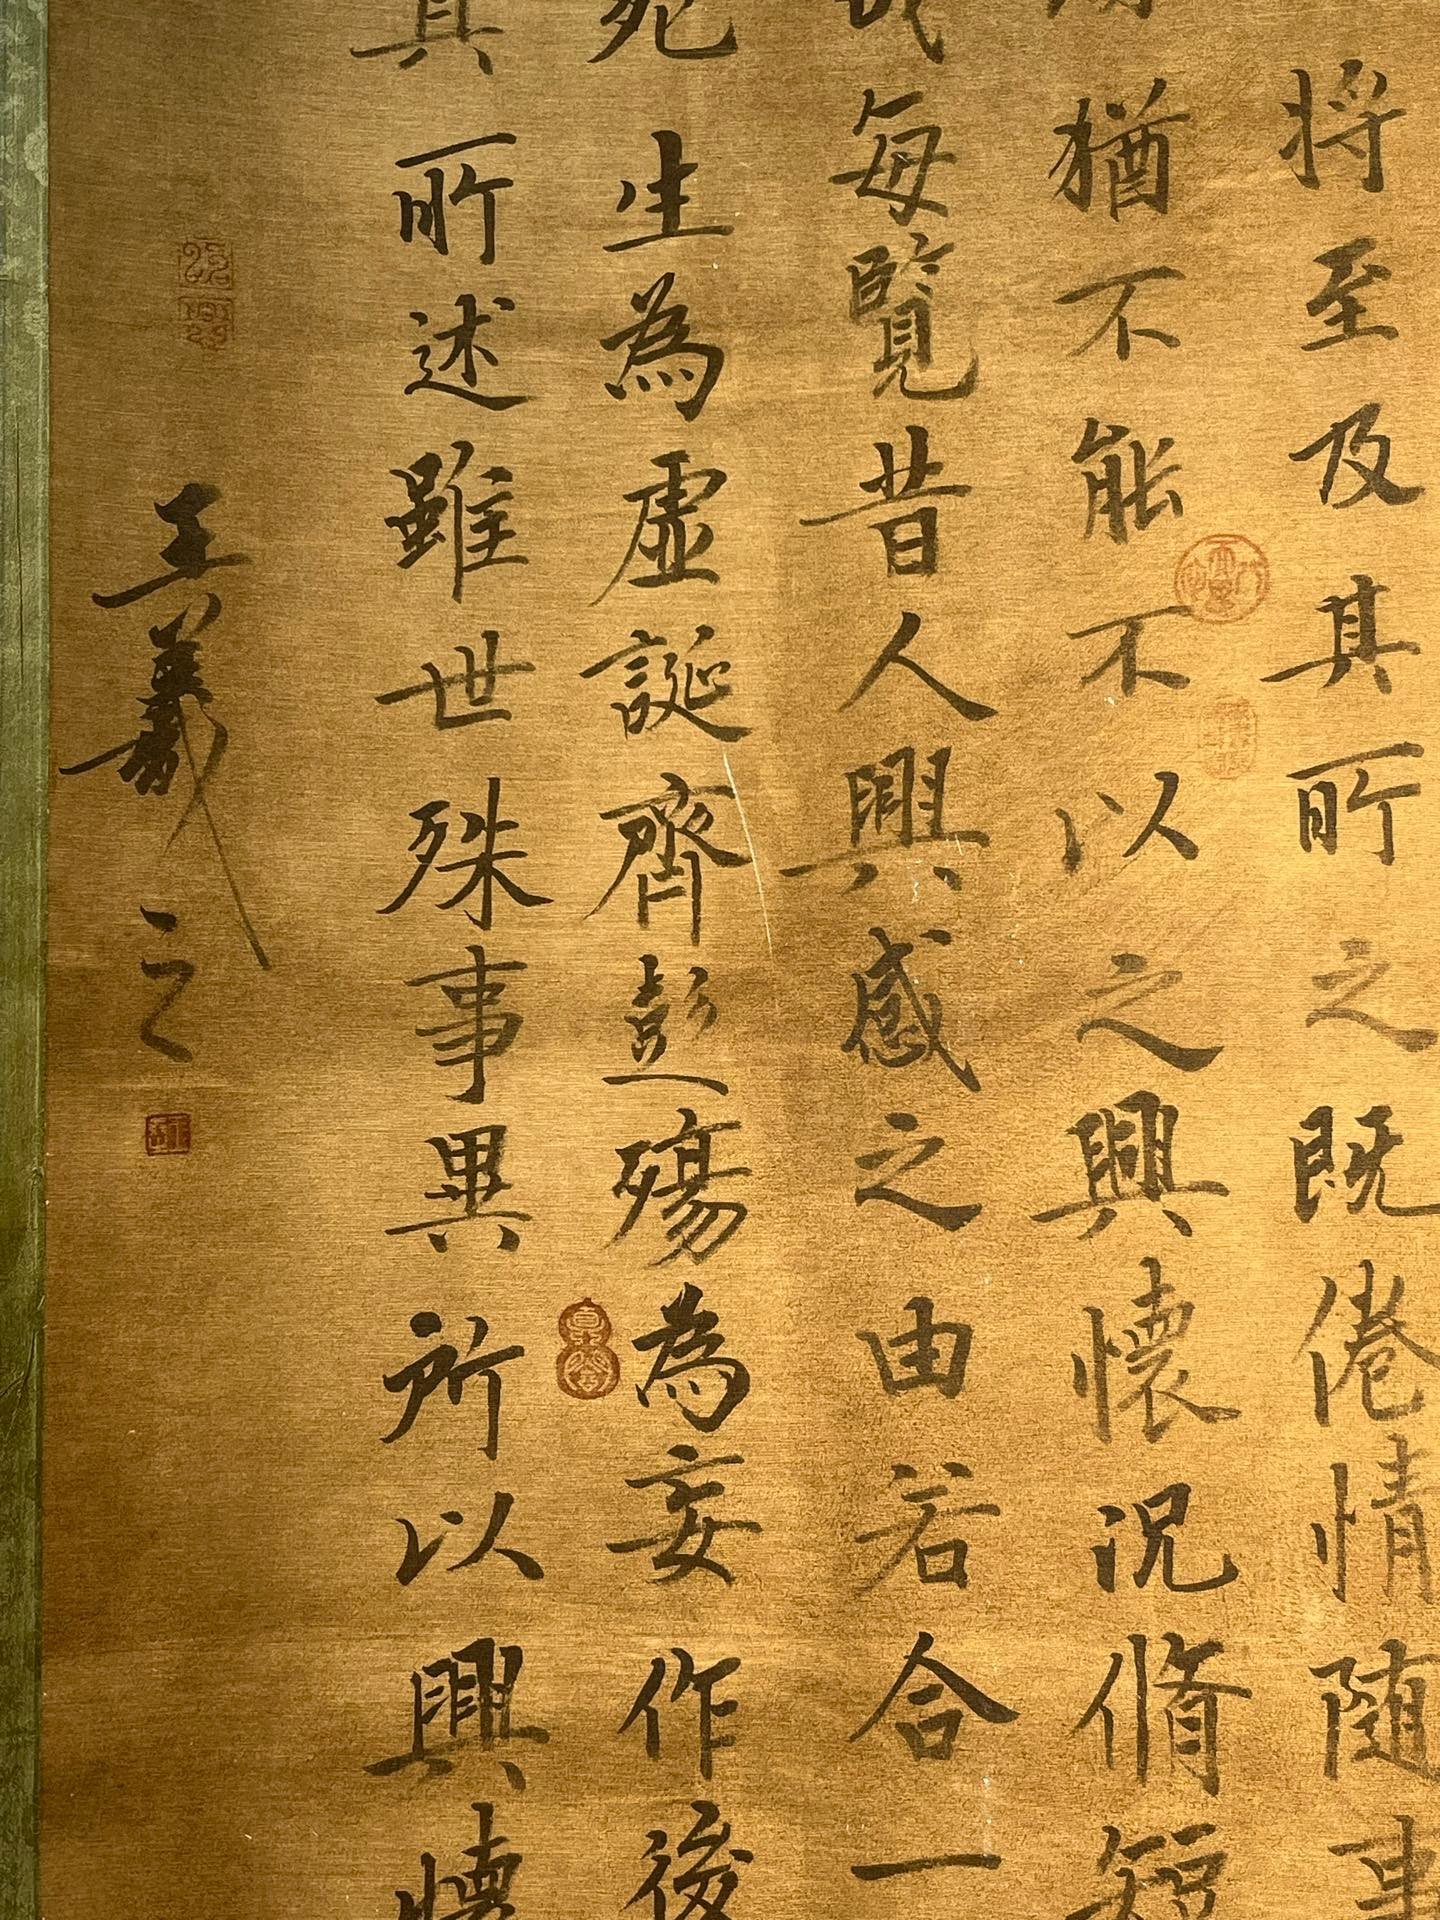 将至及其所之既倦情随事
猶不能不以之興懷況脩短
每覽昔人興感之由若合一
死生為虛誕齊彭殤為妄作後
其所述雖世殊事異所以興懷
王羲之